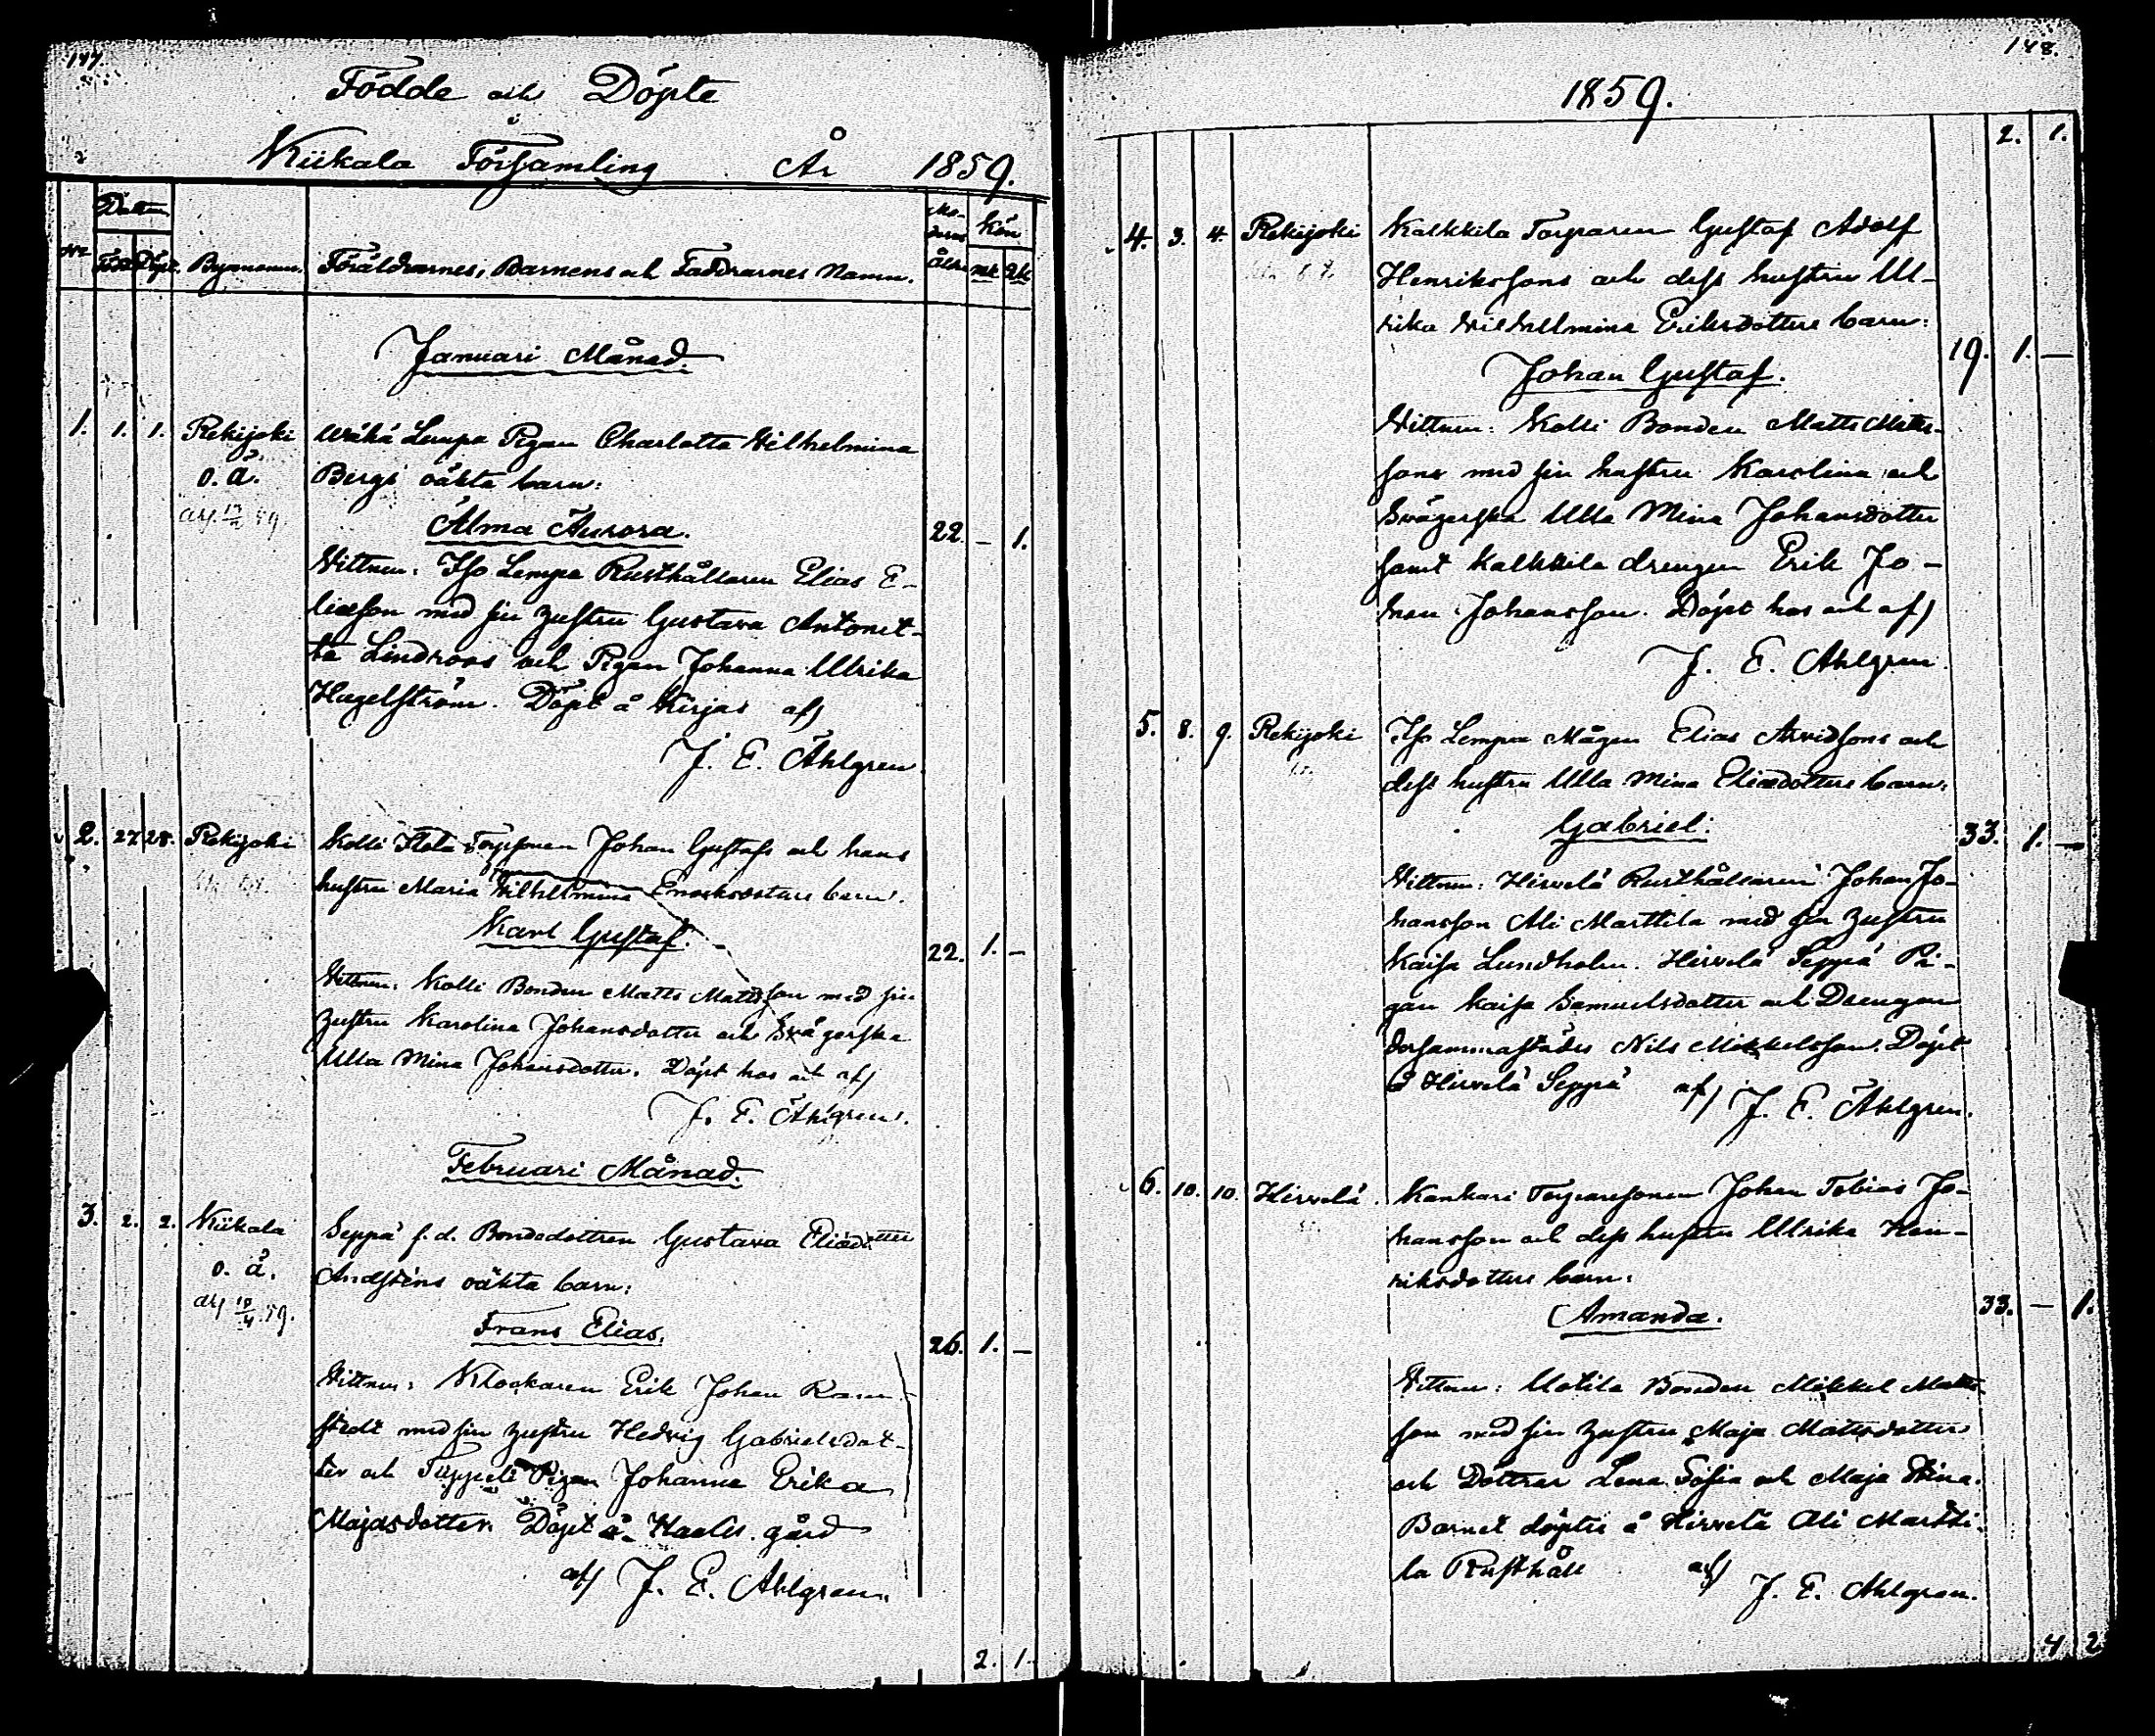 147.
Födde och Döpte
i
Kiikala Församling År 1859.
Datum
Mo-
derns
Ålder
Kön
No Född Döpt. Byanamn. Föräldrarnes, Barnens och Faddrarnes Namn. mk qk
Januari Månad.
1. 1. 1. Rekijoki Wähä Lempa Pigan Charlotta Wilhelmina
o. ä. Bergs oäkta barn:
Alma Aurora. 22. — 1.
Vittnen: Iso Lempa Rusthållaren Elias E-
liasson med sin hustru Gustava Antonet-
ta Lindroos och Pigan Johanna Ulrika
Hagelström. Döpt å Kirjas af/
J. E. Ahlgren.
2. 27. 28. Rekijoki Kolli Torpsonen Johan Gustafs och hans
hustru Maria Wilhelmina Enoksdotters barn.
Karl Gustaf. 22. 1. —
Vittnen: Kolli Bonden Matts Mattsson med sin
hustru Karolina Johansdotter och Svägerska
Ulla Mina Johansdotter. Döpt hos och af/
J. E. Ahlgren.
Februari Månad.
3. 2. 2. Kiikala Seppä f. d. Bondedottren Gustava Eliædotter
o. ä. oäkta barn:
Frans Elias. 26. 1. —
Vittnen: Klockaren Erik Johan Ram-
stedt med sin hustru Hedvig Gabrielsdot-
ter och Pigan Johanna Erika
Majasdotter. Döpt å Haalis gård
af/ J. E. Ahlgren.
2. 1.
148.
1859.
2. 1.
4. 3. 4. Rekijoki Kalkkila Torparen Gustaf Adolf
Henrikssons och dess hustru Ul-
rika Wilhelmina Eriksdotters barn:
Johan Gustaf. 19. 1. —
Vittnen: Kolli Bonden Matts Matts-
sons med sin hustru Karolina och
Svägerska Ulla Mina Johansdotter
samt Kalkkila drengen Erik Jo-
han Johansson. Döpt hos och af/
J. E. Ahlgren.
5. 8. 9. Rekijoki Iso Lempa Mågen Elias Arvidsons och
dess hustru Ulla Mina Eliædotters barn:
Gabriel. 33. 1. —
Vittnen: Hirvelä Rusthållaren Johan Jo-
hansson Ali Marttila med sin hustru
Kaisa Lundholm. Hirvelä Seppä Pi-
gan Kaisa Samuelsdotter och Drengen
dersammastädes Nils Mikkelsson. Döpt
å Hirvelä Seppä af/ J. E. Ahlgren.
6. 10. 10. Hirvelä. Kankari Torparesonen Johan Tobias Jo-
hansson och dess hustru Ulrika Hen-
riksdotters barn:
Amanda. 33. — 1.
Vittnen: Uotila Bonden Mikkel Matts-
son med sin hustru Maja Mattsdotter
och Döttrar Lena Sofia och Maja Stina.
Barnet döptes å Hirvelä Ali Martti-
la Rusthåll af/
J. E. Ahlgren.
4 2